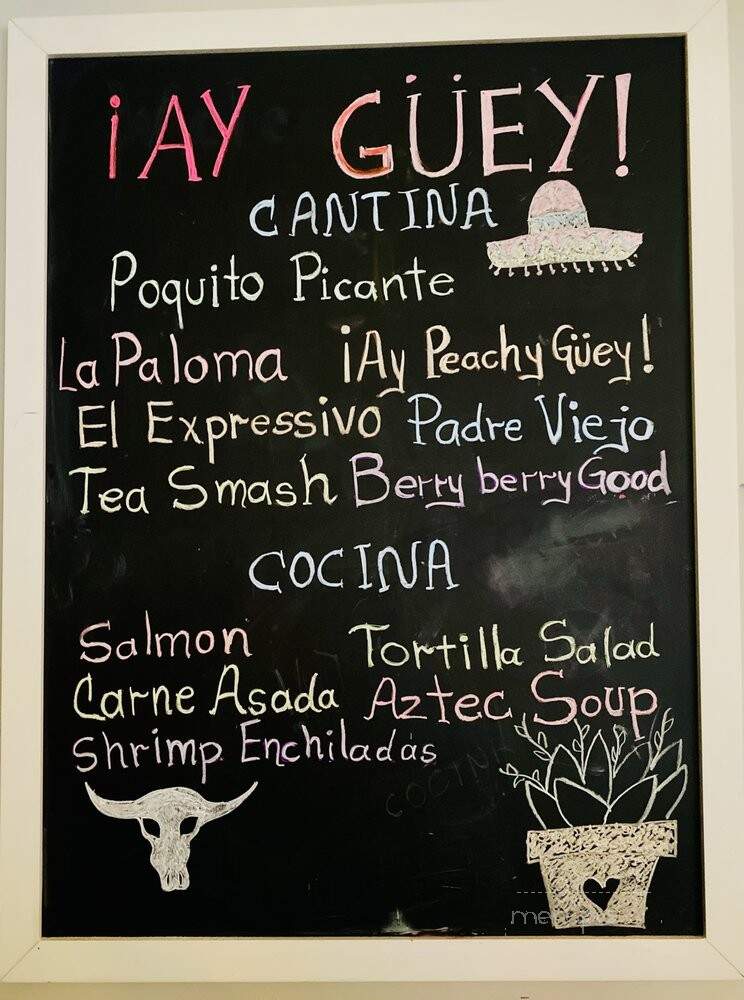 ¡AY GÜEY!
CANTINA
Poquito Picante
La Paloma ¡Ay Peachy Güey!
El Expressivo Padre Viejo
Tea Smash Berry berry Good
COCINA
Salmon Tortilla Salad
Carne Asada Aztec Soup
Shrimp Enchiladas
COCINA